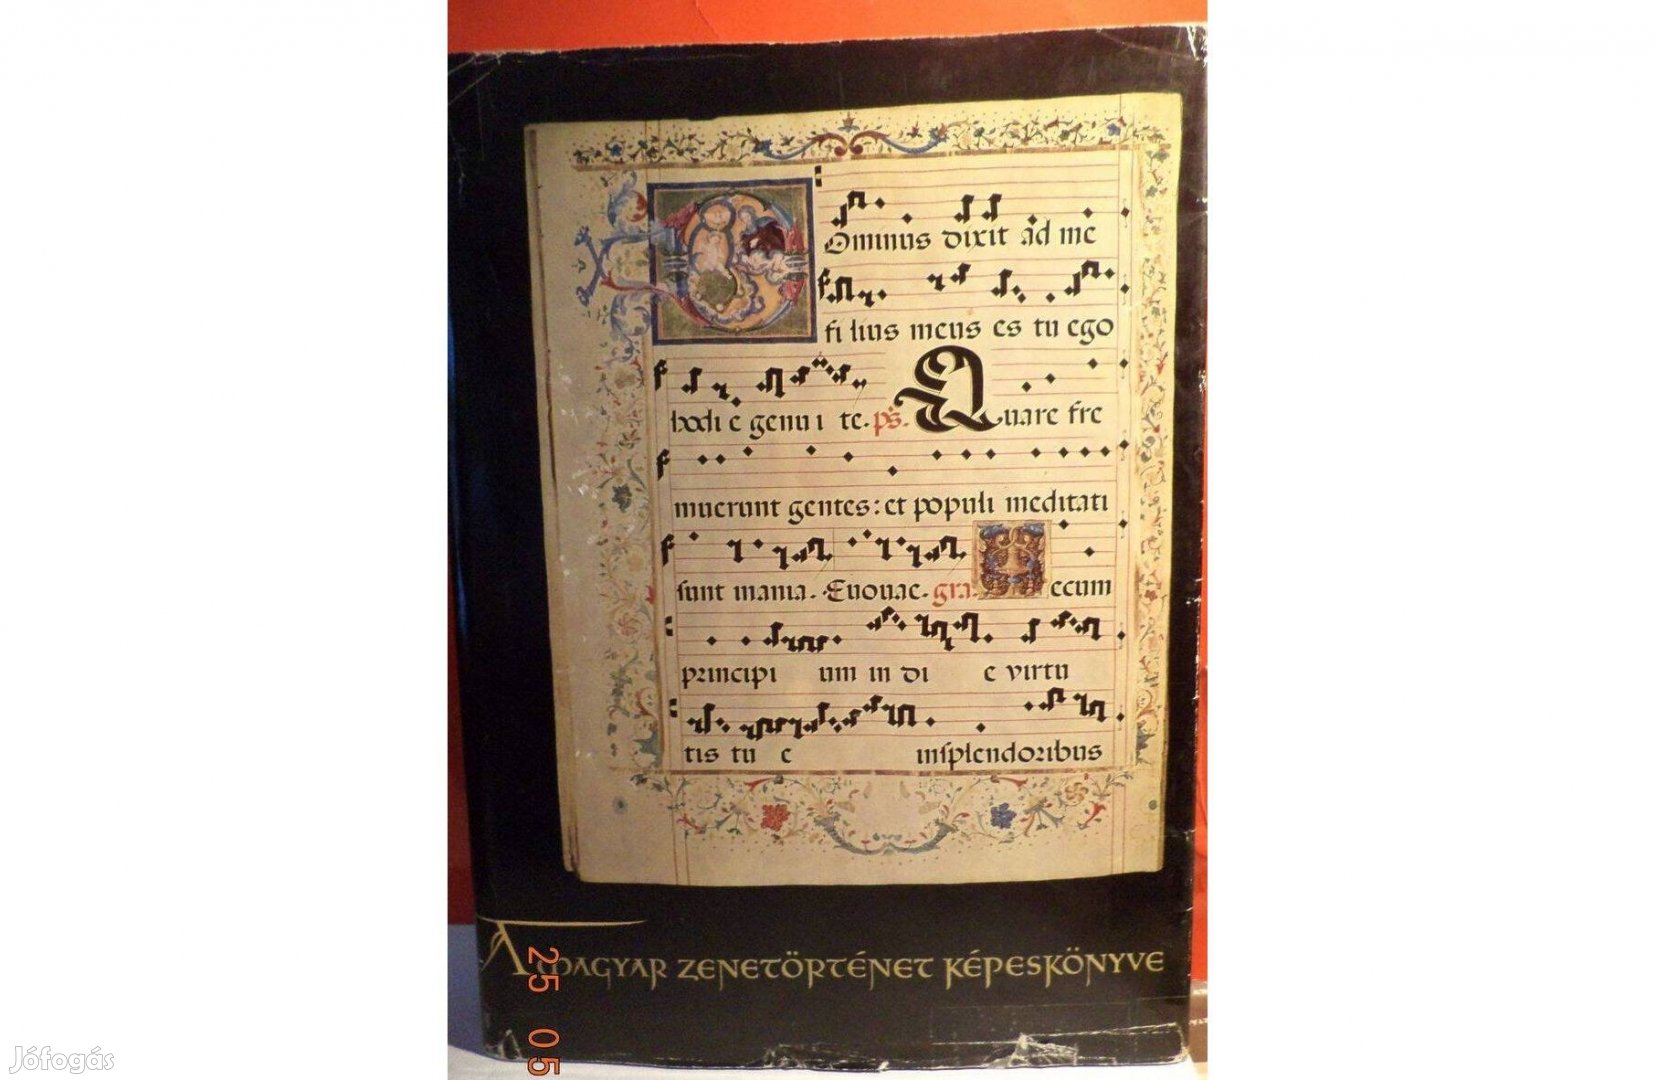 Ominus dixit ad me
fi lius meus es tu ego
hodi e genu i te. ps. Quare fre
muerunt gentes: et populi meditati
sunt inania. Euouae. gra. ecum
principi um in di e virtu
tis tu e insplendoribus
A MAGYAR ZENETÖRTÉNET KÉPESKÖNYVE
25 05
Jófogás